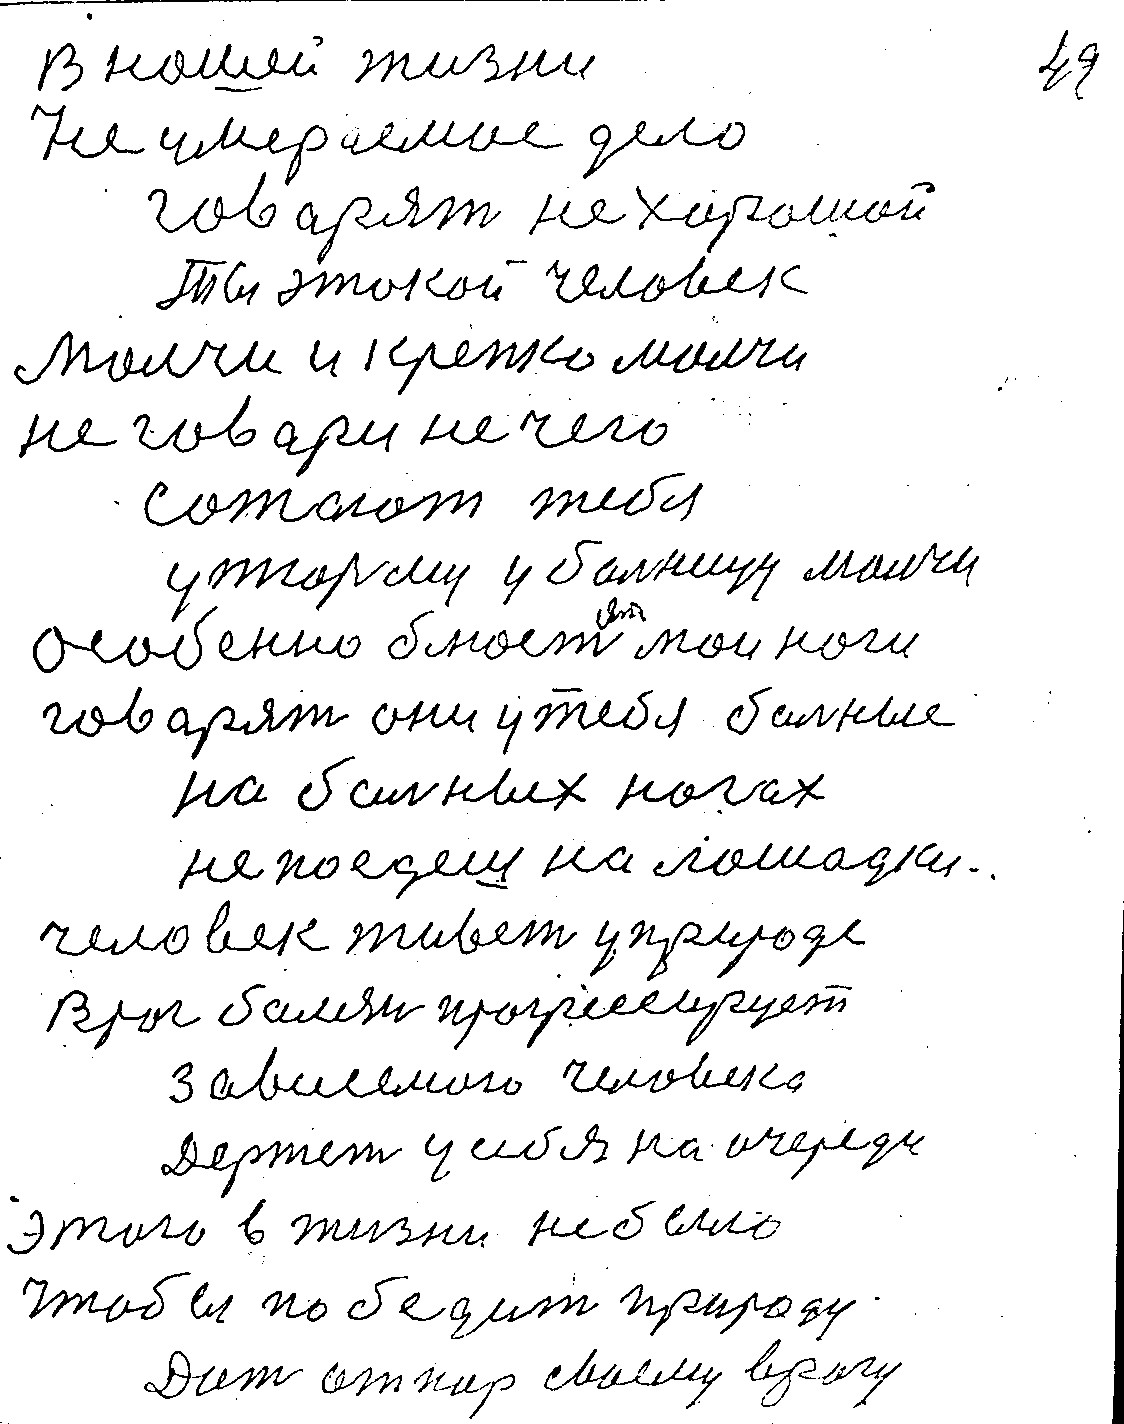 В нашей жизни
49
Не умераемое дело
говарят не хорошой
Ты этокой человек
Молчи и крепко молчи
не говари не чего
сожгют тебя
у тюрму у балницу молчи
особенно блюет мои ноги
говарят они у тебя балные
на балных ногах
не поедеш на лошадки..
человек живет у природе
Враг балезн прогрессирует
зависемого человека
Держет у себя на очереди
Этого в жизни не было
Чтобы победит природу
Дат отпор своему врагу